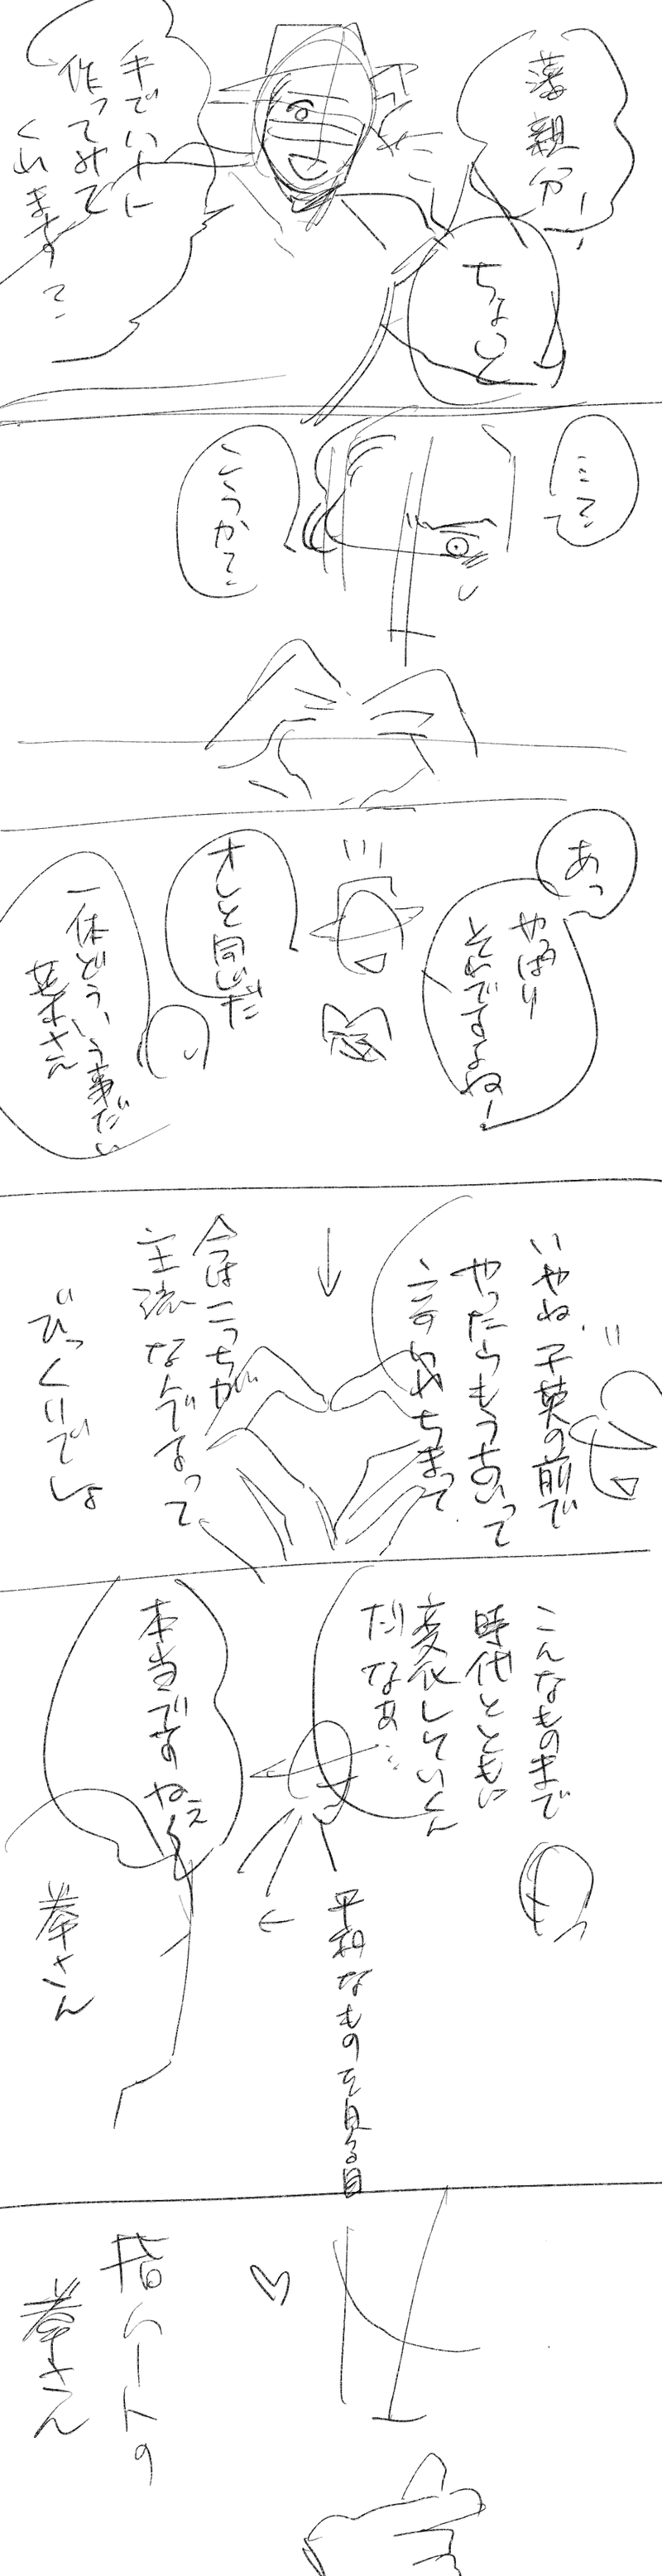 藻親分!
ちょいと
手でハート
作ってみて
くれますか?
……?
こうか?
あっ
やっぱり
そうですよねー!
オレと同じだ
一体どういう事だい
葉さん
いやね、子英の前で
やったらもう古いって
言われちまって
今はこっちが
主流なんですって
びっくりでしょ
こんなものまで
時代とともに
変化していくん
だなぁ…
平和なものを見る目
本当ですねぇ
拳さん
指ハートの
拳さん